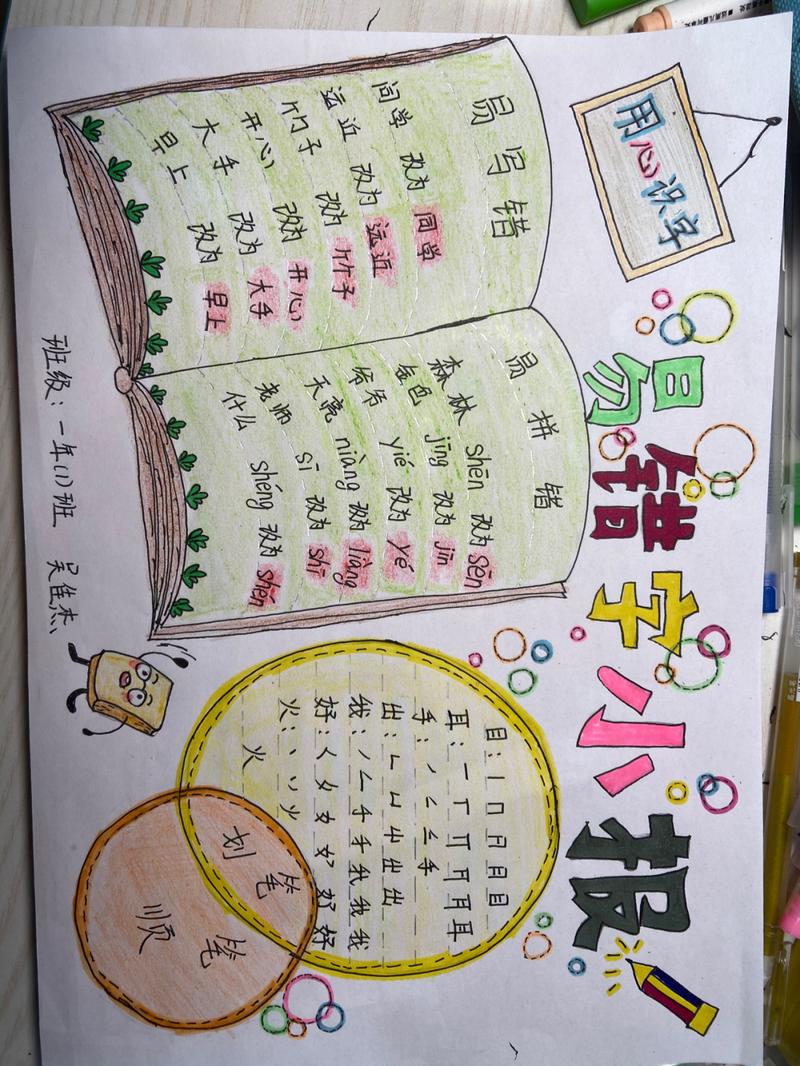 用心识字
易错字小报
易写错
同学 改为 同学
远近 改为 远近
竹子 改为 竹子
开心 改为 开心
大手 改为 大手
早上 改为 早上
易拼错
森林 shēn 改为 sēn
金色 jīng 改为 jīn
爷爷 yié 改为 yé
天亮 niàng 改为 liàng
老师 sī 改为 shī
什么 shéng 改为 shén
目:丨 冂 月 月 目
耳:一 丅 丌 月 月 耳
手:丿 二 三 手
出:乚 凵 屮 出 出
我:丿 二 千 手 我 我 我
好:く 夕 女 好 好 好
火:丶 丷 火
火
笔划
笔顺
班级:一年(1)班 吴佳杰